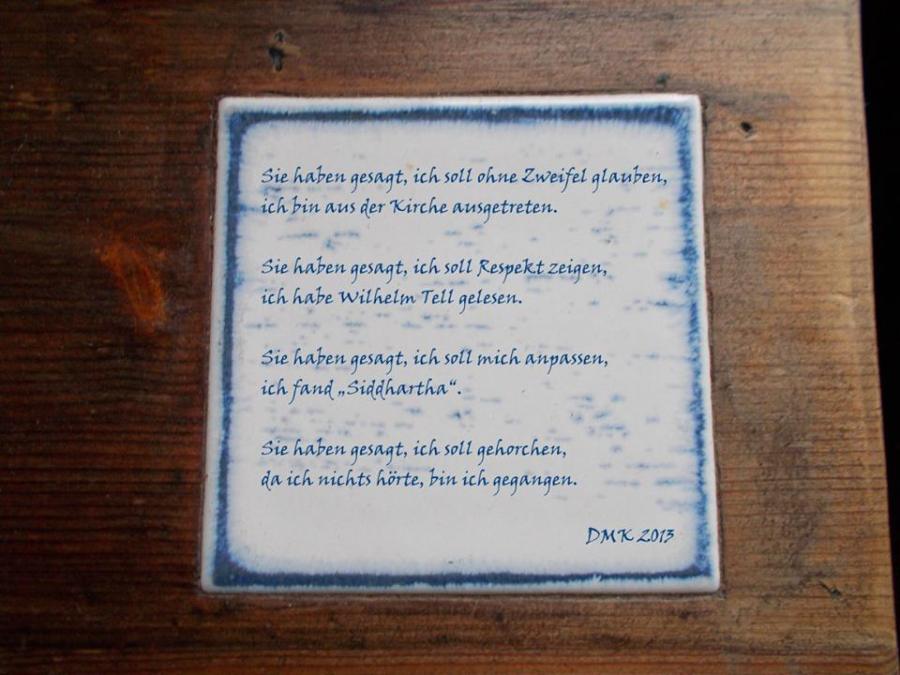 Sie haben gesagt, ich soll ohne Zweifel glauben,
ich bin aus der Kirche ausgetreten.
Sie haben gesagt, ich soll Respekt zeigen,
ich habe Wilhelm Tell gelesen.
Sie haben gesagt, ich soll mich anpassen,
ich fand „Siddhartha“.
Sie haben gesagt, ich soll gehorchen,
da ich nichts hörte, bin ich gegangen.
DMK 2013